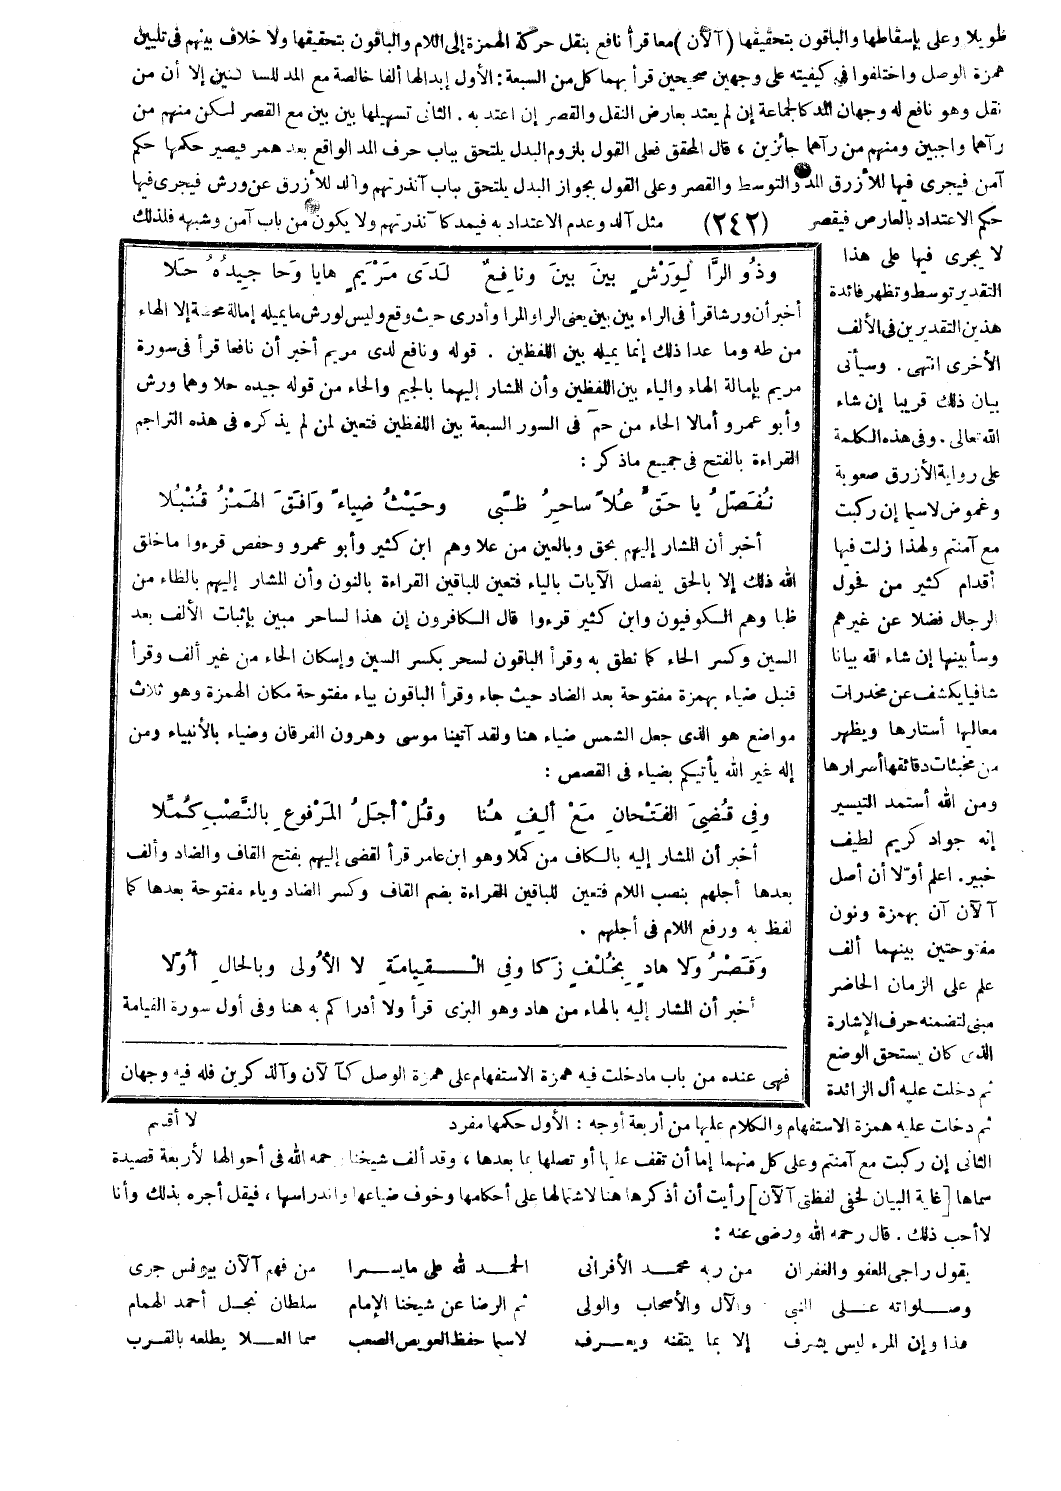 طويلا وعلى بإسقاطها والباقون بتحقيقها (آلآن) معا قرأ نافع بنقل حركة الهمزة إلى اللام والباقون بتحقيقها ولا خلاف بينهم فى تليين
همزة الوصل واختلفوا فى كيفيته على وجهين صحيحين قرأ بهما كل من السبعة : الأول إبدالها ألفا خالصة مع المد للساكنين إلا أن من
نقل وهو نافع له وجهان المد كالجماعة إن لم يعتد بعارض النقل والقصر إن اعتد به . الثانى تسهيلها بين بين مع القصر لكن منهم من
رآهما واجبين ومنهم من رآهما جائزين ، قال المحقق فعلى القول بلزوم البدل يلتحق بباب حرف المد الواقع بعد همز فيصير حكمها حكم
آمن فيجرى فيها للأزرق المد والتوسط والقصر وعلى القول بجواز البدل يلتحق بباب آنذرتهم وآلد للأزرق عن ورش فيجرى فيها
حكم الاعتداد بالعارض فيقصر (٢٤٢) مثل آلد وعدم الاعتداد به فيمد كآ نذرتهم ولا يكون من باب آمن وشبهه فلذلك
لا يجرى فيها على هذا
التقدير توسط وتظهر فائدة
هذين التقديرين فى الألف
الأخرى انتهى . وسيأتى
بيان ذلك قريبا إن شاء
الله تعالى . وفى هذه الكلمة
على رواية الأزرق صعوبة
وغموض لاسيما إن ركبت
مع آمنتم ولهذا زلت فيها
أقدام كثير من فحول
الرجال فضلا عن غيرهم
وسأبينها إن شاء الله بيانا
شافيا يكشف عن مخدرات
معاليها أستارها ويظهر
من مخبئات دقائقها أسرارها
ومن الله أستمد التيسير
إنه جواد كريم لطيف
خبير . اعلم أوّلا أن أصل
آلآن آن بهمزة ونون
مفتوحتين بينهما ألف
علم على الزمان الحاضر
مبنى لتضمنه حرف الإشارة
الذى كان يستحق الوضع
ثم دخلت عليه أل الزائدة
وذُو الرَّا لِوَرْشٍ بينَ بينَ ونافِعٌ لَدَى مَرْيَمٍ هايا وَحا جيدُهُ حَلا
أخبر أن ورشا قرأ فى الراء بين بين يعنى الر والمر وأدرى حيث وقع وليس لورش ما يميله إمالة محضة إلا الهاء
من طه وما عدا ذلك إنما يميله بين اللفظين . قوله ونافع لدى مريم أخبر أن نافعا قرأ فى سورة
مريم بإمالة الهاء والياء بين اللفظين وأن المشار إليهما بالجيم والحاء من قوله جيده حلا وهما ورش
وأبو عمرو أمالا الحاء من حمّ فى السور السبعة بين اللفظين فتعين لمن لم يذكره فى هذه التراجم
القراءة بالفتح فى جميع ماذكر :
نُفَصِّلُ يا حَقٍّ عُلاً ساحِرٌ ظُبًى وحَيْثُ ضِياءً وَافَقَ الهَمْزُ قُنْبُلا
أخبر أن المشار إليهم بحق وبالعين من علا وهم ابن كثير وأبو عمرو وحفص قرءوا ماخلق
الله ذلك إلا بالحق يفصل الآيات بالياء فتعين للباقين القراءة بالنون وأن المشار إليهم بالظاء من
ظبا وهم الكوفيون وابن كثير قرءوا قال الكافرون إن هذا لساحر مبين بإثبات الألف بعد
السين وكسر الحاء كما نطق به وقرأ الباقون لسحر بكسر السين وإسكان الحاء من غير ألف وقرأ
قنبل ضياء بهمزة مفتوحة بعد الضاد حيث جاء وقرأ الباقون بياء مفتوحة مكان الهمزة وهو ثلاث
مواضع هو الذى جعل الشمس ضياء هنا ولقد آتينا موسى وهرون الفرقان وضياء بالأنبياء ومن
إله غير الله يأتيكم بضياء فى القصص :
وفِي قُضِيَ الفَتْحانِ مَعْ ألِفٍ هُنا وقُلْ أجَلُ المَرْفوعِ بالنَّصْبِ كُمِّلا
أخبر أن المشار إليه بالكاف من كملا وهو ابن عامر قرأ لقضى إليهم بفتح القاف والضاد وألف
بعدها أجلهم بنصب اللام فتعين للباقين القراءة بضم القاف وكسر الضاد وياء مفتوحة بعدها كما
لفظ به ورفع اللام فى أجلهم .
وَقَصْرُ وَلا هادٍ بِخُلْفٍ زَكا وفِي الْقِيامَةِ لا الأُولى وبالحالِ أُوِّلا
أخبر أن المشار إليه بالهاء من هاد وهو البزى قرأ ولا أدراكم به هنا وفى أول سورة القيامة
فهى عنده من باب مادخلت فيه همزة الاستفهام على همزة الوصل كآلآن وآلذكرين فله فيه وجهان
ثم دخلت عليه همزة الاستفهام والكلام عليها من أربعة أوجه : الأول حكمها مفرد لا أقسم
الثانى إن ركبت مع آمنتم وعلى كل منهما إما أن تقف عليها أو تصلها بما بعدها ، وقد ألف شيخنا رحمه الله فى أحوالها لأربعة قصيدة
سماها [غاية البيان لخفى لفظتى آلآن] رأيت أن أذكرها هنا لاشتمالها على أحكامها وخوف ضياعها واندراسها ، فيقل أجره بذلك وأنا
لا أحب ذلك . قال رحمه الله ورضى عنه :
يقول راجى العفو والغفران من ربه محمد الأفرانى الحمد لله على مايسرا من فهم آلآن بيونس جرى
وصلواته على النبى والآل والأصحاب والولى ثم الرضا عن شيخنا الإمام سلطان نجل أحمد الهمام
هذا وإن المرء ليس يشرف إلا بما يتقنه ويعرف لاسيما حفظ العويص الصعب سما العلا يطلعه بالقرب